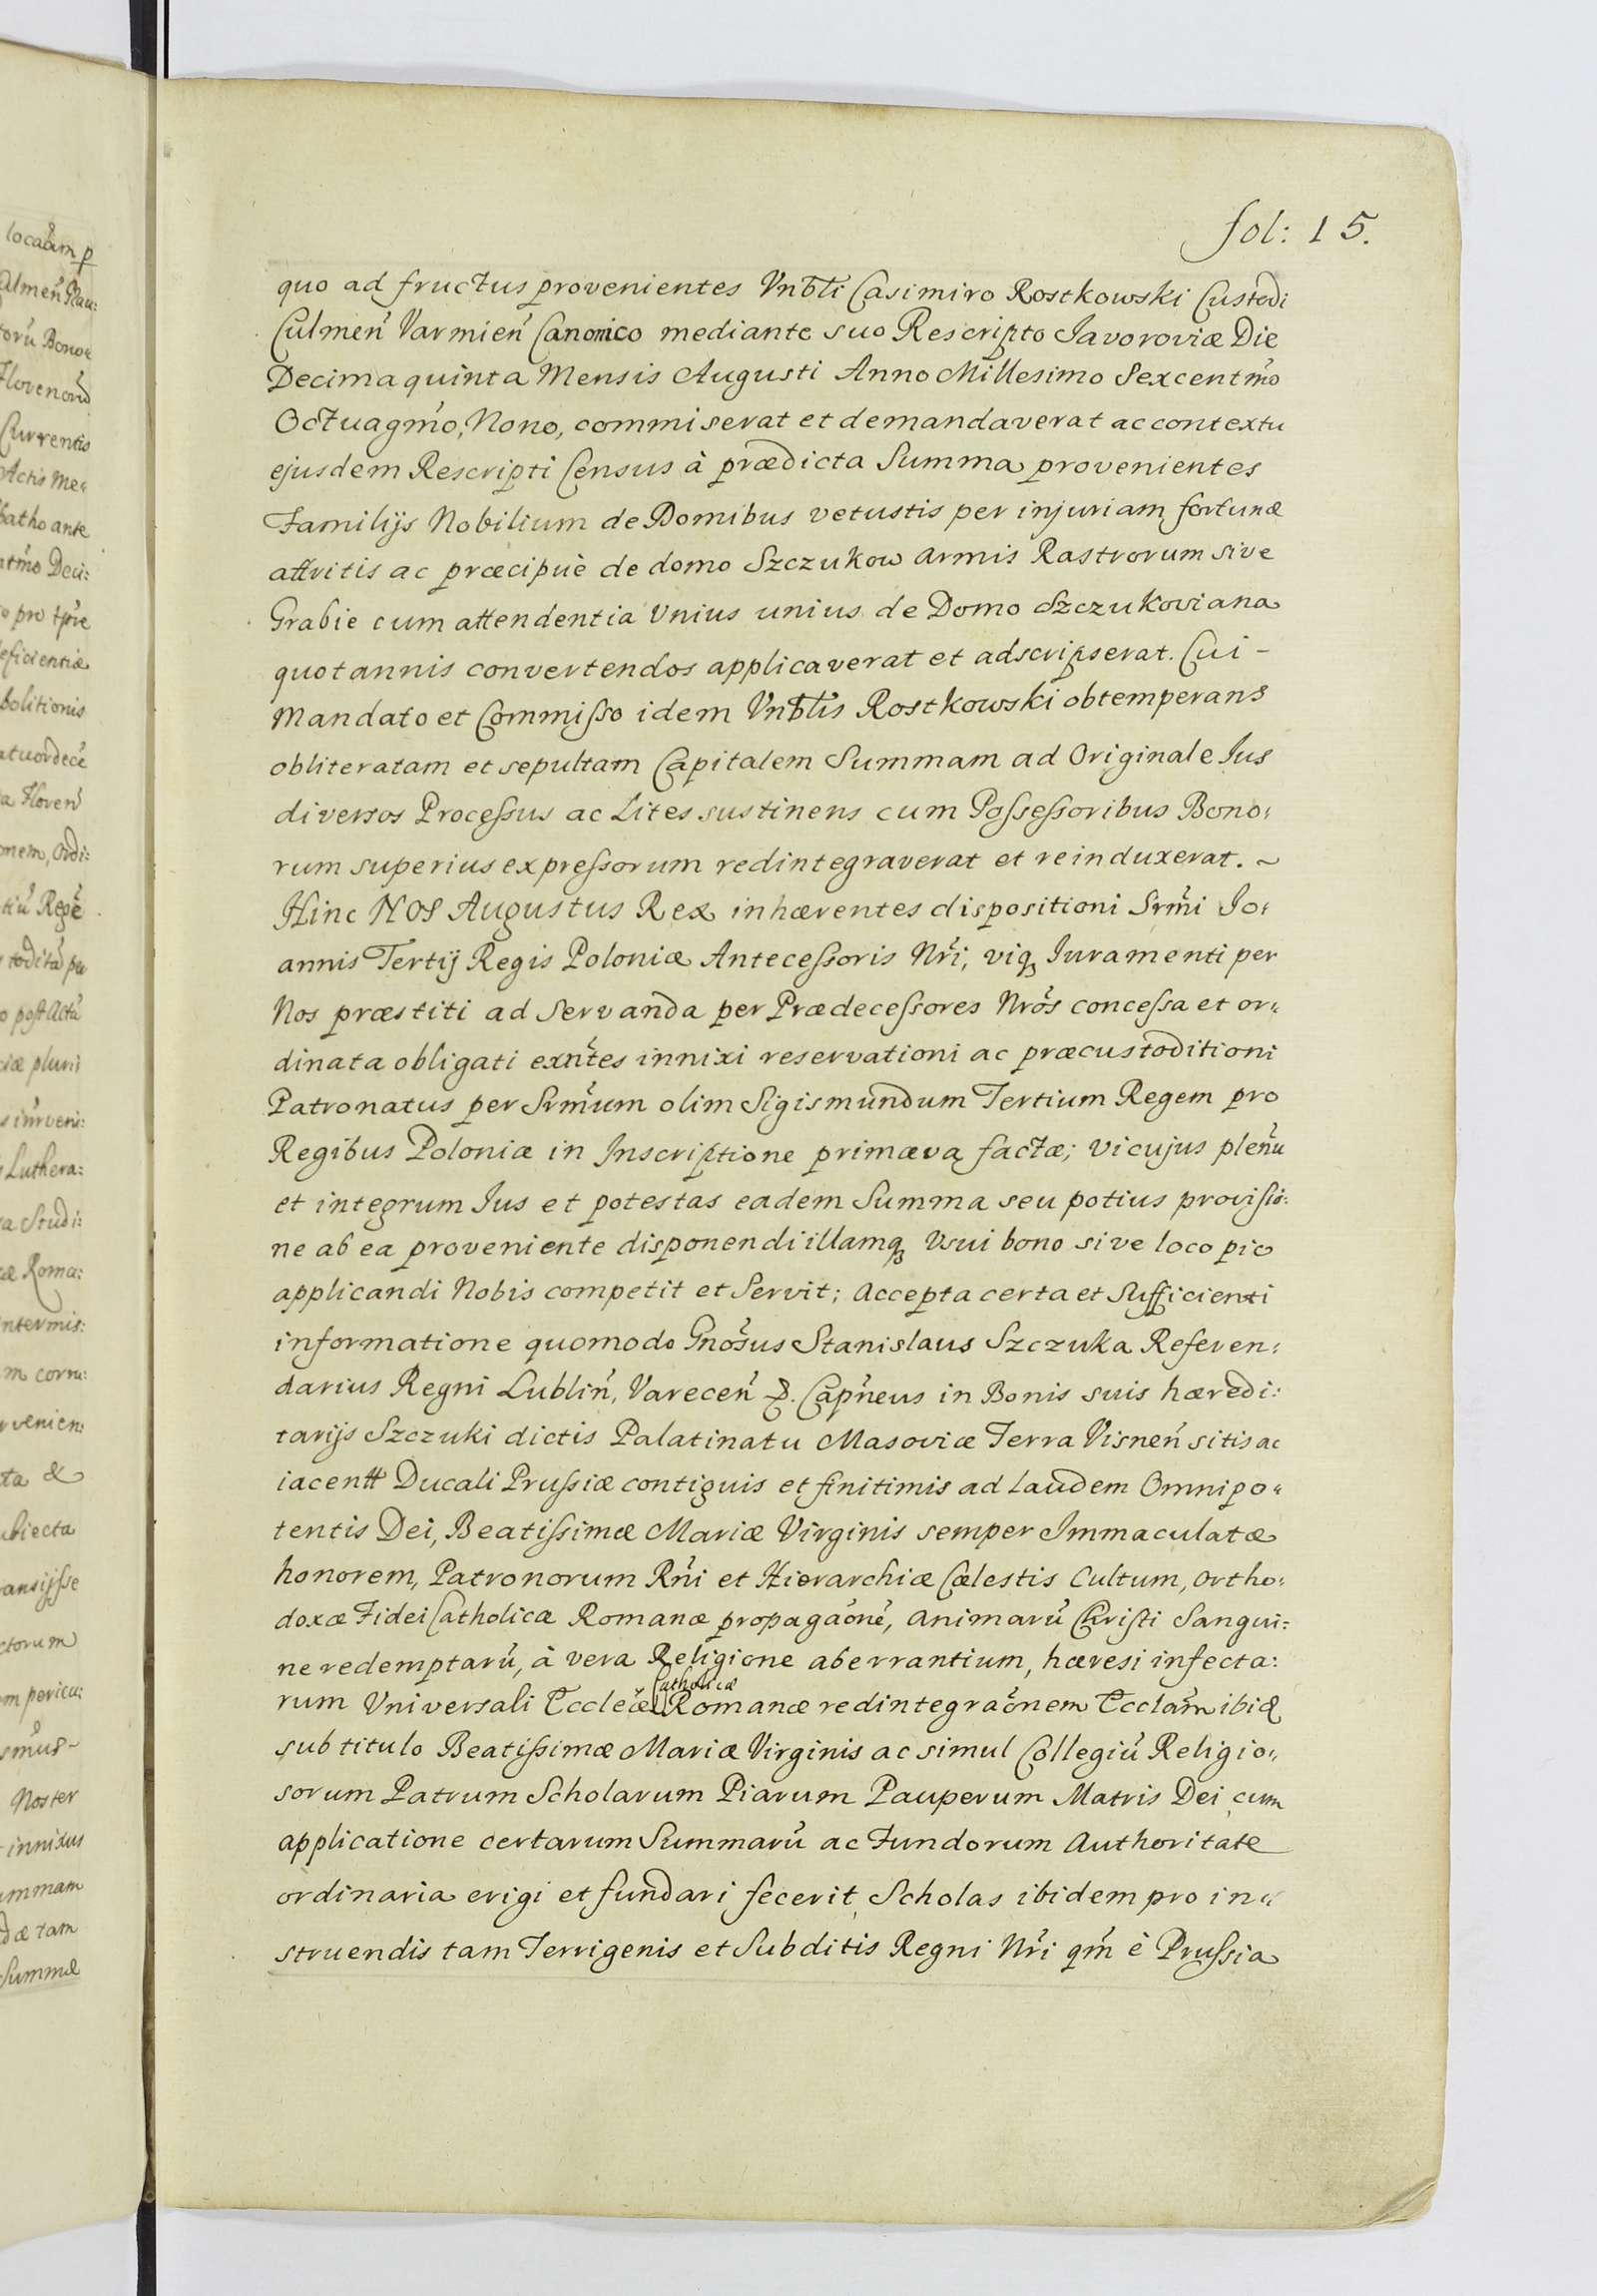 fol: 15.
quo ad fructus provenientes Vnbli Casimiro Rostkowski Custodi
Culmeń Varmień Canonico mediante suo Rescripto Javoroviæ Die
Decima quinta Mensis Augusti Anno Millesimo Sexcentmo
Octuagmo, Nono, commiserat et demandaverat ac contextu
ejusdem Rescripti Census à prædicta Summa provenientes
Familijs Nobilium de Domibus vetustis per injuriam fortunæ
attritis ac præcipuè de domo Szczukow armis Rastrorum sive
Grabie cum attendentia Vnius unius de Domo Szczukoviana
quotannis convertendos applicaverat et adscripserat. Cui -
Mandato et Commisso idem Vnblis Rostkowski obtemperans
obliteratam et sepultam Capitalem Summam ad Originale Jus
diversos Processus ac Lites sustinens cum Possessoribus Bono:
rum superius expressorum redintegraverat et reinduxerat. ~
Hinc NOS Augustus Rex inhærentes dispositioni Srmi Jo:
annis Tertij Regis Poloniæ Antecessoris Nri, viq Juramenti per
Nos præstiti ad Servanda per Prædecessores Nros concessa et or:
dinata obligati exntes innixi reservationi ac præcustoditioni
Patronatus per Srmum olim Sigismundum Tertium Regem pro
Regibus Poloniæ in Inscriptione primæva factæ; vi cujus plenu
et integrum Jus et potestas eadem Summa seu potius provisio:
ne ab ea proveniente disponendi illamq Usui bono sive loco pio
applicandi Nobis competit et Servit; Accepta certa et Sufficienti
informatione quomodo Gnosus Stanislaus Szczuka Referen:
darius Regni Lubliń, Vareceń &. Capneus in Bonis suis hæredi:
tarijs Szczuki dictis Palatinatu Masoviæ Terra Visneń sitis ac
iacentt Ducali Prussiæ contiguis et finitimis ad laudem Omnipo:
tentis Dei, Beatissimæ Mariæ Virginis semper Immaculatæ
honorem, Patronorum Rni et Hierarchiæ Cælestis Cultum, Ortho:
doxæ Fidei Catholicæ Romanæ propagaone, Animaru Christi Sangui:
ne redemptaru, à vera Religione aberrantium, hæresi infecta:
rum Universali Eccleæ Catholicæ Romanæ redintegraonem Ecclam ibid
sub titulo Beatissimæ Mariæ Virginis ac simul Collegiu Religio:
sorum Patrum Scholarum Piarum Pauperum Matris Dei cum
applicatione certarum Summaru ac Fundorum Authoritate
ordinaria erigi et fundari fecerit, Scholas ibidem pro in:
struendis tam Terrigenis et Subditis Regni Nri qm è Prussia